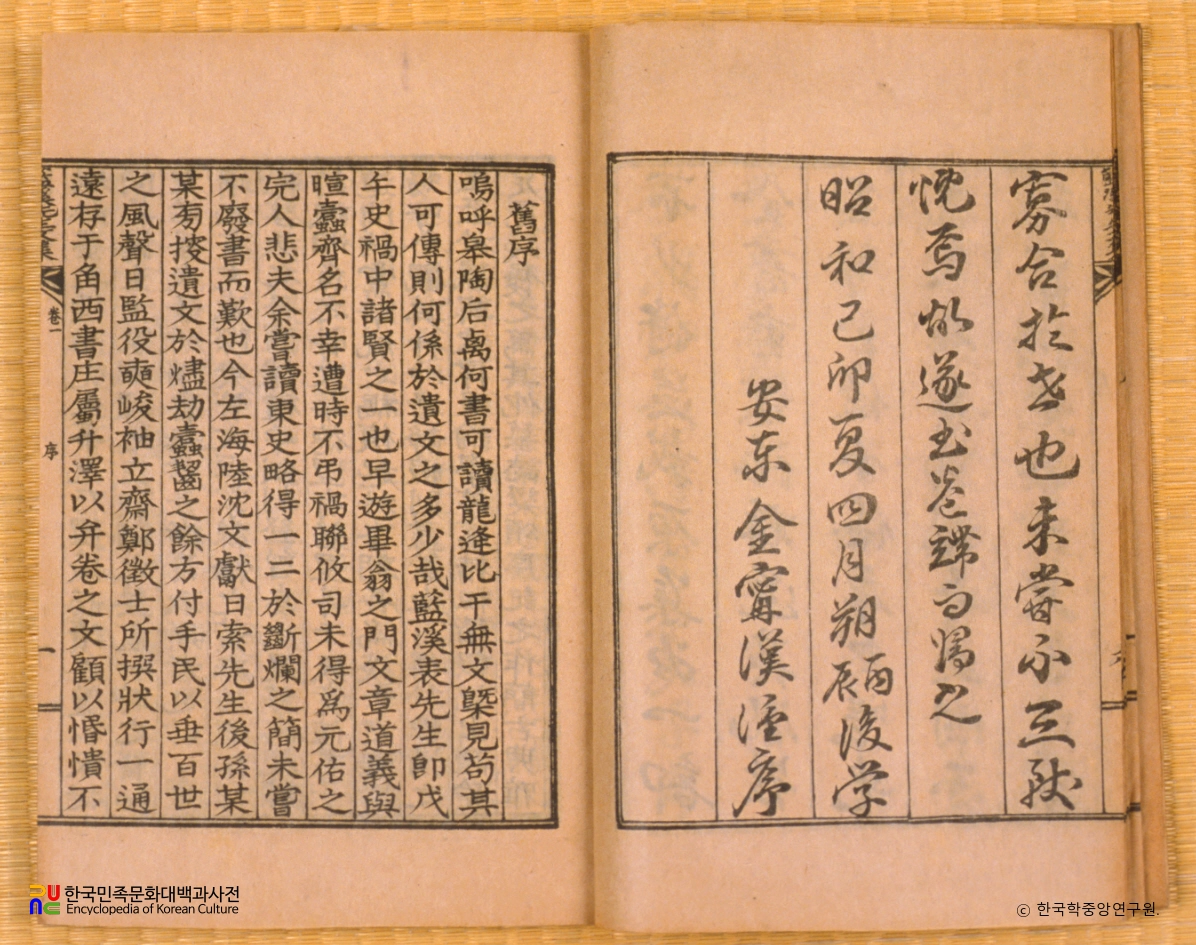 寡合於世也未嘗不三歎
慨焉故遂書卷端而歸之
昭和己卯夏四月朔丙辰後学
安東金甯漢謹序
舊序
嗚呼皋陶后卨何書可讀龍逢比干無文槩見苟其
人可傳則何係於遺文之多少哉藍溪表先生卽戊
午史禍中諸賢之一也早遊畢翁之門文章道義與
暄蠹齊名不幸遭時不弔禍聯攸司未得爲元佑之
完人悲夫余嘗讀東史略得一二於斷爛之簡未嘗
不廢書而歎也今左海陸沈文獻日索先生後孫某
某方按遺文於燼劫蠹齧之餘方付手民以垂百世
之風聲日監役奭峻袖立齋鄭徵士所撰狀行一通
遠存于角西書庄屬升澤以弁卷之文顧以惛憒不
卷一
序
一
한국민족문화대백과사전
Encyclopedia of Korean Culture
© 한국학중앙연구원.